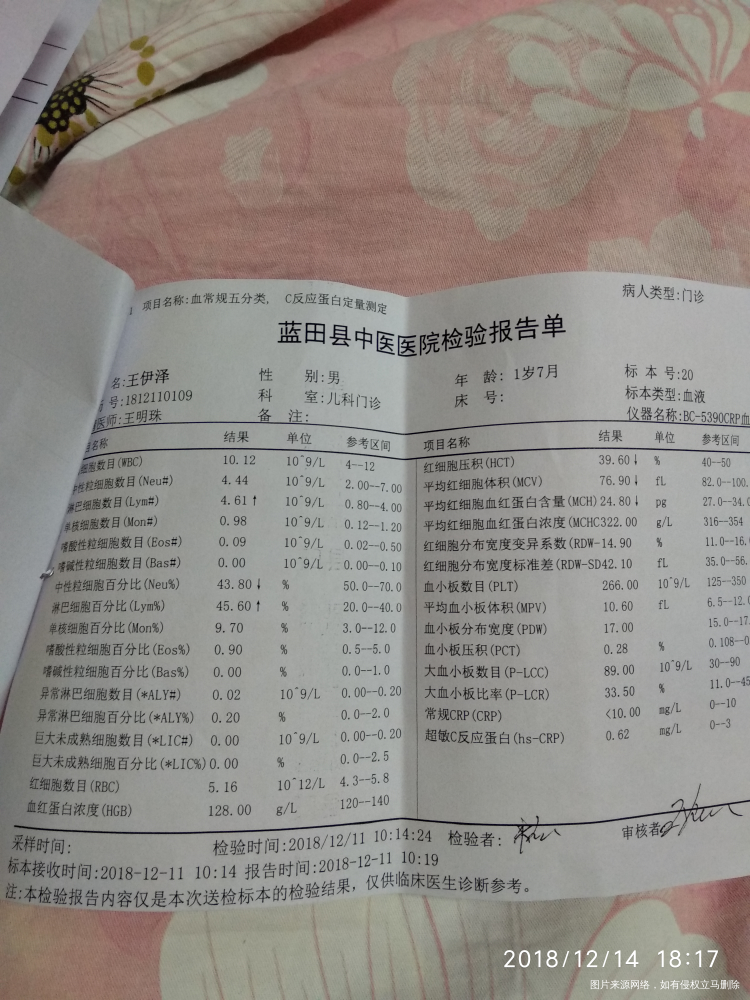 项目名称:血常规五分类, C反应蛋白定量测定
病人类型:门诊
蓝田县中医医院检验报告单
名:王伊泽 性 别:男 年 龄: 1岁7月 标 本 号:20
号:1812110109 科 室:儿科门诊 床 号: 标本类型:血液
医师:王明珠 备 注: 仪器名称:BC-5390CRP血
名称 结果 单位 参考区间 项目名称 结果 单位 参考区间
细胞数目(WBC) 10.12 10^9/L 4--12
中性粒细胞数目(Neu#) 4.44 10^9/L 2.00--7.00
淋巴细胞数目(Lym#) 4.61↑ 10^9/L 0.80--4.00
单核细胞数目(Mon#) 0.98 10^9/L 0.12--1.20
嗜酸性粒细胞数目(Eos#) 0.09 10^9/L 0.02--0.50
嗜碱性粒细胞数目(Bas#) 0.00 10^9/L 0.00--0.10
中性粒细胞百分比(Neu%) 43.80↓ % 50.0--70.0
淋巴细胞百分比(Lym%) 45.60↑ % 20.0--40.0
单核细胞百分比(Mon%) 9.70 % 3.0--12.0
嗜酸性粒细胞百分比(Eos%) 0.90 % 0.5--5.0
嗜碱性粒细胞百分比(Bas%) 0.00 % 0.0--1.0
异常淋巴细胞数目(*ALY#) 0.02 10^9/L 0.00--0.20
异常淋巴细胞百分比(*ALY%) 0.20 % 0.0--2.0
巨大未成熟细胞数目(*LIC#) 0.00 10^9/L 0.00--0.20
巨大未成熟细胞百分比(*LIC%) 0.00 % 0.0--2.5
红细胞数目(RBC) 5.16 10^12/L 4.3--5.8
血红蛋白浓度(HGB) 128.00 g/L 120--140
红细胞压积(HCT) 39.60↓ % 40--50
平均红细胞体积(MCV) 76.90↓ fL 82.0--100.
平均红细胞血红蛋白含量(MCH) 24.80↓ pg 27.0--34.0
平均红细胞血红蛋白浓度(MCHC 322.00 g/L 316--354
红细胞分布宽度变异系数(RDW- 14.90 % 11.0--16.
红细胞分布宽度标准差(RDW-SD 42.10 fL 35.0--56.
血小板数目(PLT) 266.00 10^9/L 125--350
平均血小板体积(MPV) 10.60 fL 6.5--12.0
血小板分布宽度(PDW) 17.00 15.0--17.
血小板压积(PCT) 0.28 % 0.108--0
大血小板数目(P-LCC) 89.00 10^9/L 30--90
大血小板比率(P-LCR) 33.50 % 11.0--45
常规CRP(CRP) <10.00 mg/L 0--10
超敏C反应蛋白(hs-CRP) 0.62 mg/L 0--3
采样时间: 检验时间:2018/12/11 10:14:24 检验者: 审核者
标本接收时间:2018-12-11 10:14 报告时间:2018-12-11 10:19
注:本检验报告内容仅是本次送检标本的检验结果, 仅供临床医生诊断参考。
2018/12/14 18:17
图片来源网络，如有侵权立马删除